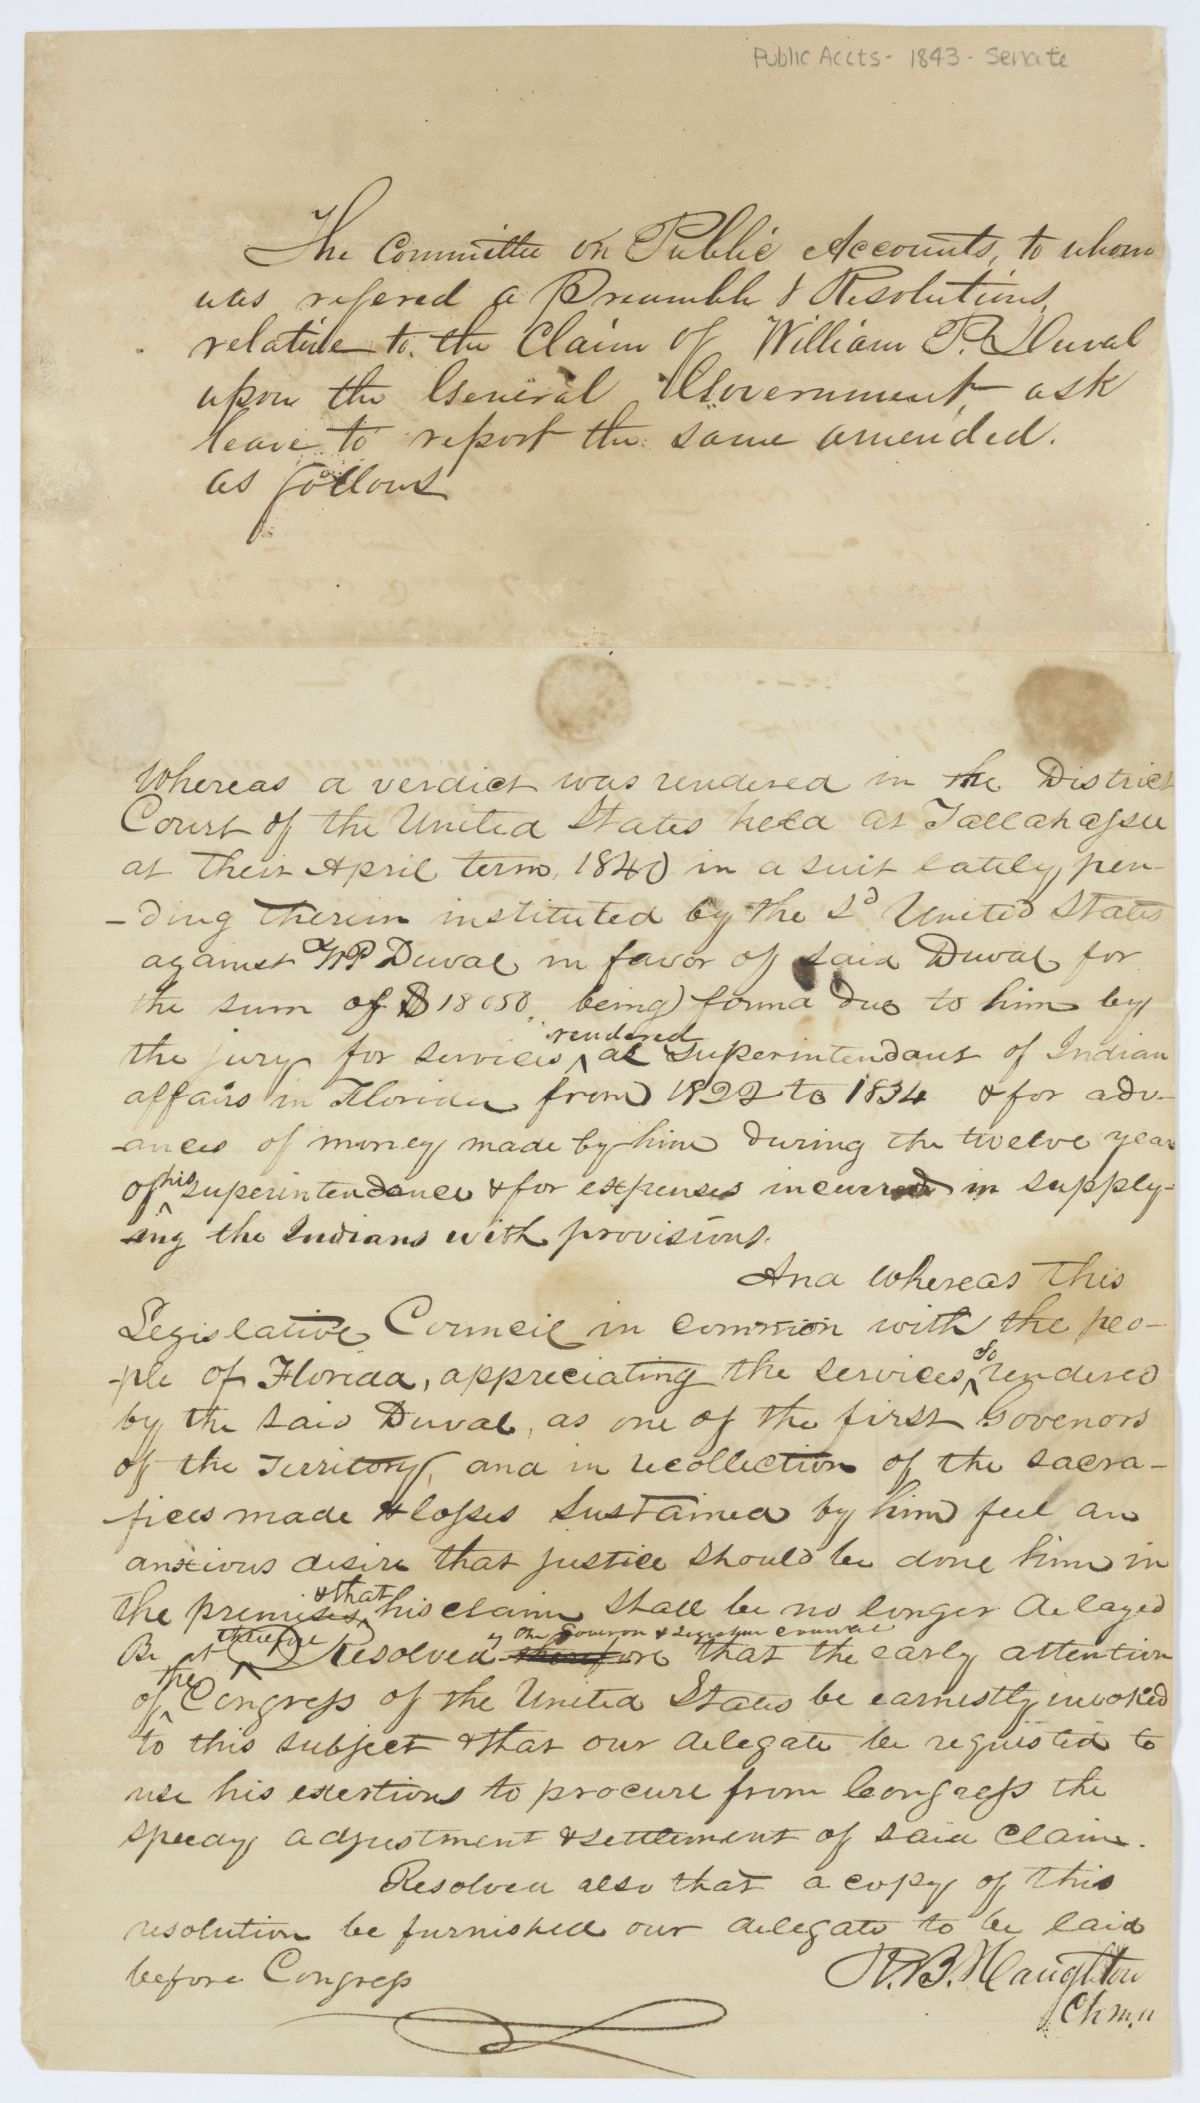 Public Accts - 1843 - Senate
The Committee on Public Accounts, to whom
was refered a Preamble & Resolutions,
relative to the Claim of William P. Duval
upon the General Government, ask
leave to report the same amended.
as follows
Whereas a verdict was rendered in the District
Court of the United States held at Tallahassee
at their April term, 1840 in a suit lately pen-
-ding therein instituted by the Sd United States
against W P Duval in favor of said Duval for
the sum of $18050, being found due to him by
the jury for services rendered as Superintendant of Indian
affairs in Florida from 1822 to 1834 & for adv-
-ances of money made by him during the twelve years
of his superintendance & for expenses incurred in supply-
-ing the Indians with provisions.
And whereas this
Legislative Council in common with the peo-
-ple of Florida, appreciating the services so rendered
by the said Duval, as one of the first Govenors
of the Territory, and in recollection of the sacra-
-fices made & losses sustained by him feel an
anxious desire that justice should be done him in
the premises, & that his claim shall be no longer delayed
Be it therefore Resolved by the Govenor & Legislative council therefore that the early attention
of the Congress of the United States be earnestly invoked
to this subject & that our delegate be requisted to
use his exertions to procure from Congress the
speedy adjustment & settlement of said claim.
Resolved also that a copy of this
resolution be furnished our delegate to be laid
before Congress
R. B. Haughton
Chmn